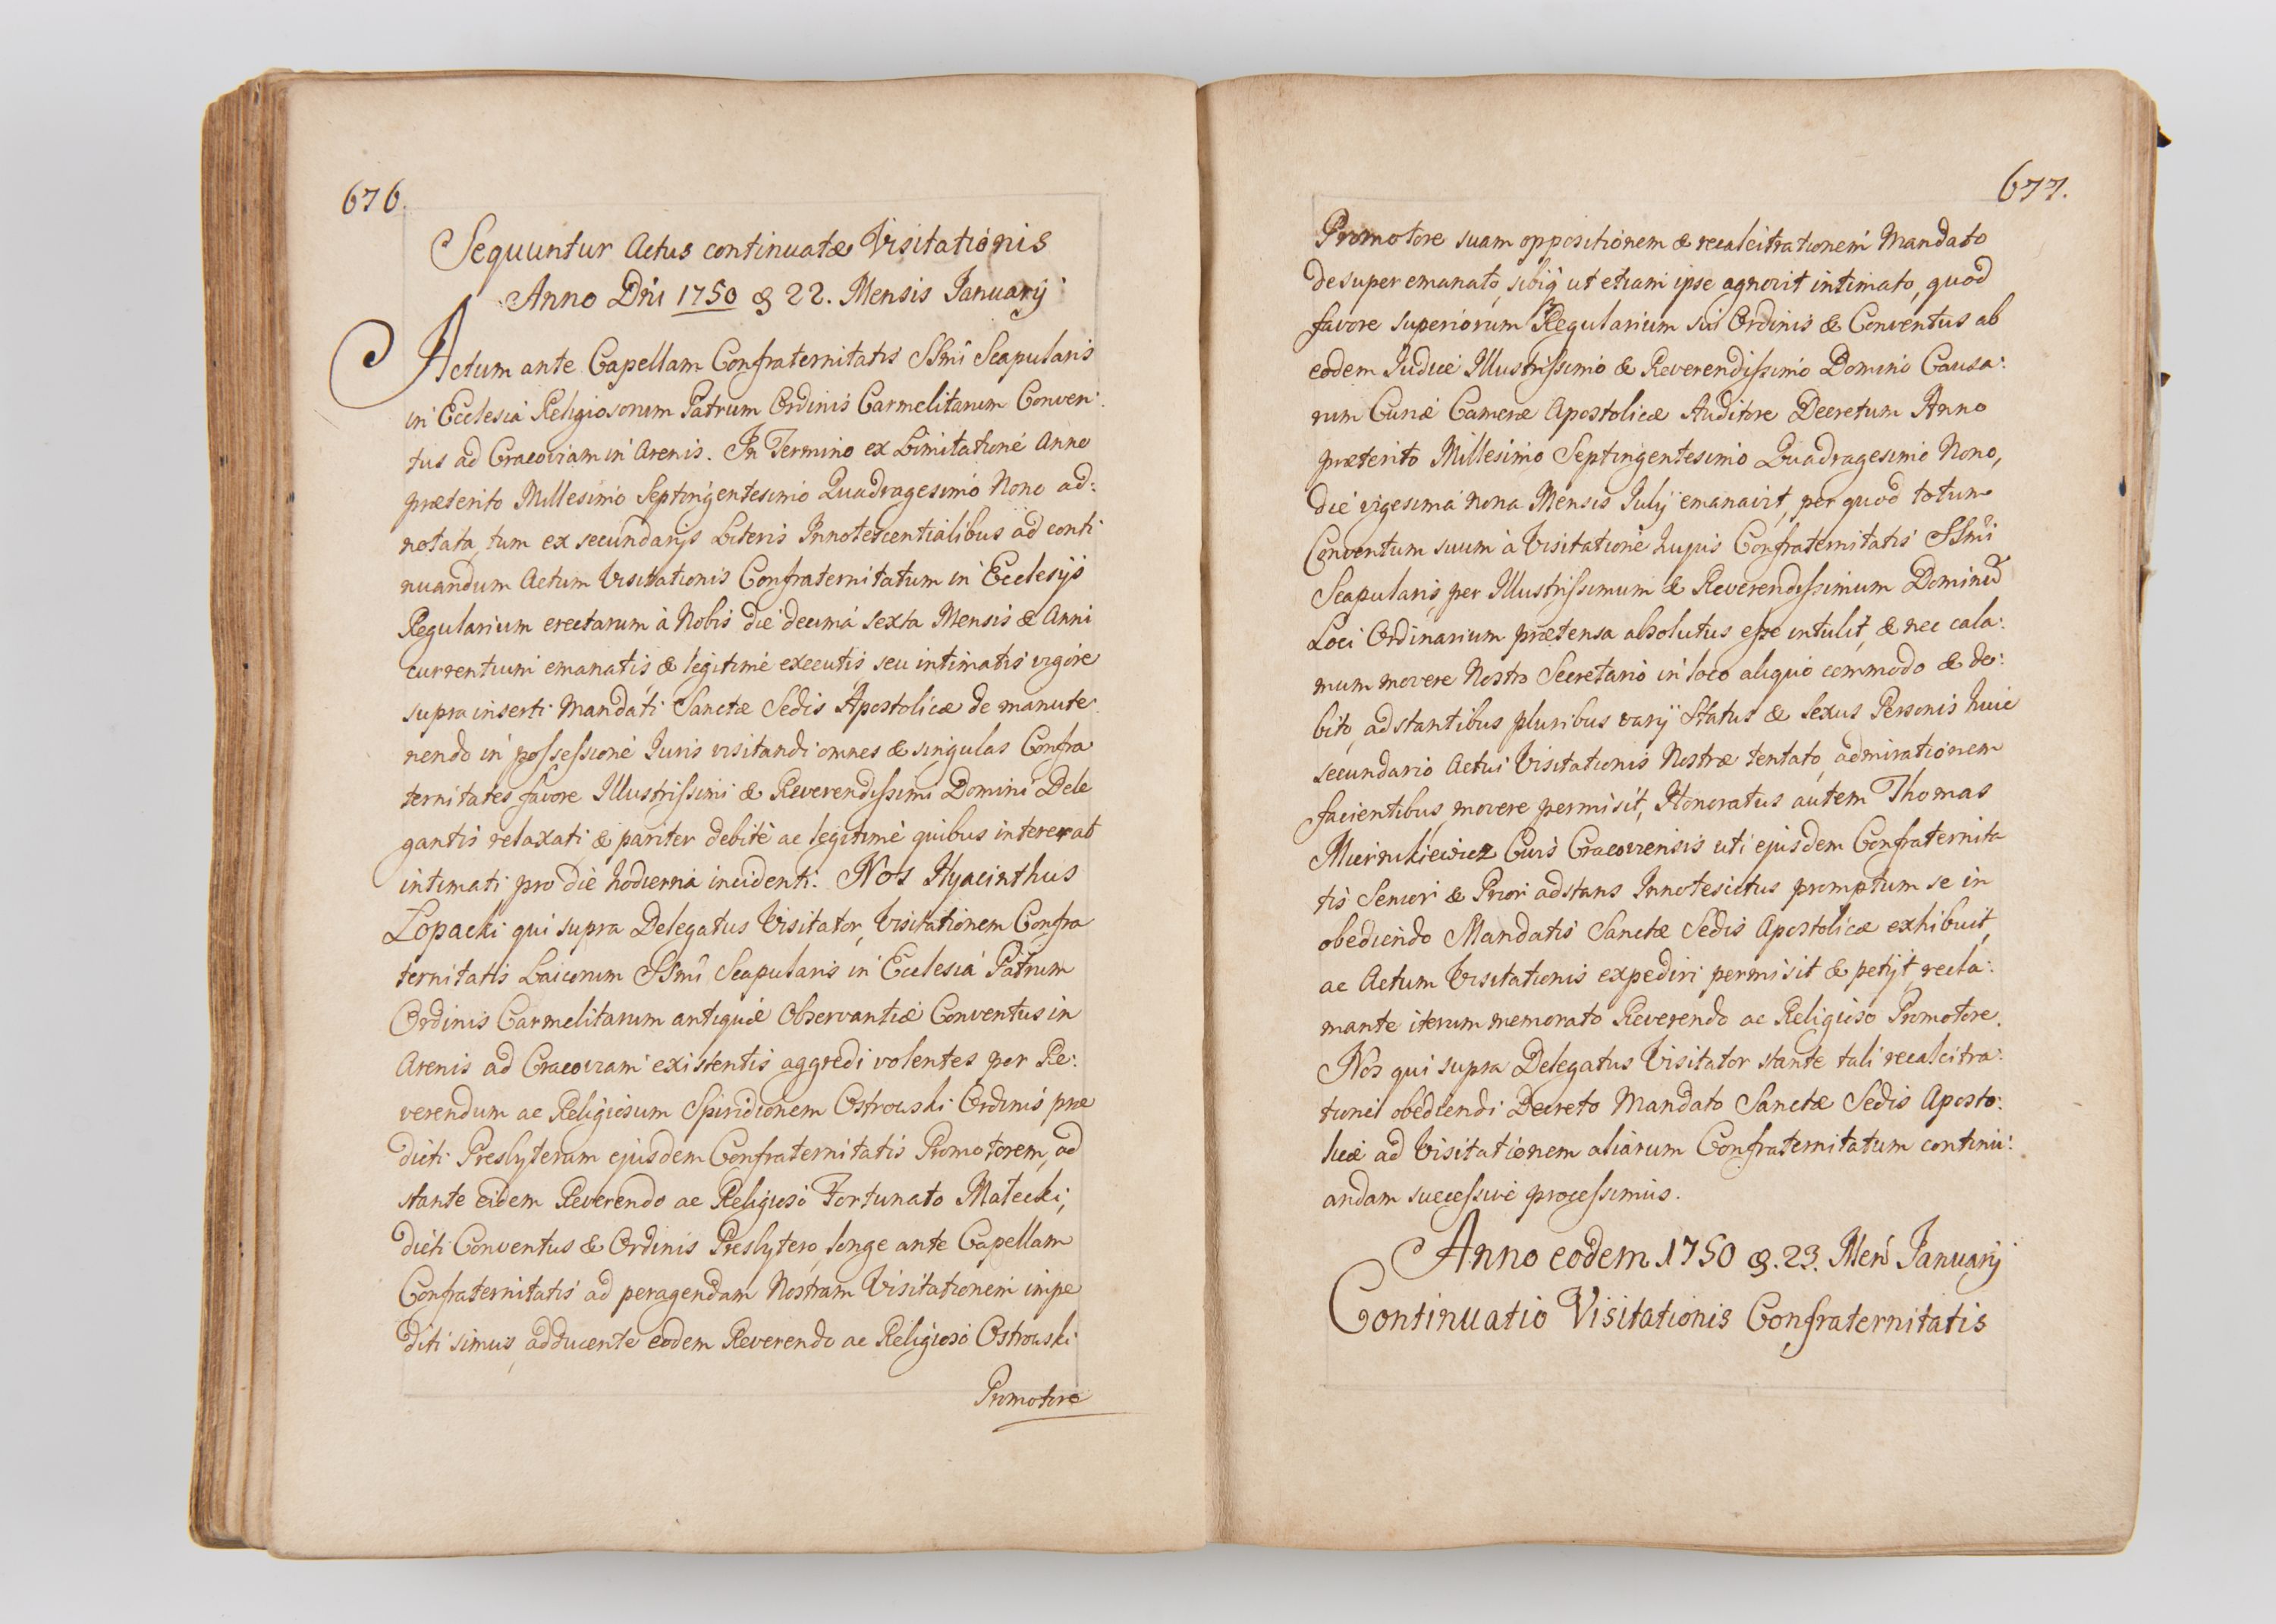 676.
Sequuntur Actus continuatæ Visitationis
Anno Dñi 1750 & 22. Mensis Januarij
Actum ante Capellam Confraternitatis SSmi Scapularis
in Ecclesia Religiosorum Patrum Ordinis Carmelitarum Conven:
tus ad Cracoviam in Arenis. In Termino ex Limitatione Anno
præterito Millesimo Septingentesimo Quadragesimo Nono ad:
notata, tum ex secundarijs Literis Innotescentialibus ad conti
nuandum Actum Visitationis Confraternitatum in Ecclesijs
Regularium erectarum à Nobis die decima sexta Mensis & Anni
currentium emanatis & legitimè executis, seu intimatis vigore
supra inserti Mandati Sanctæ Sedis Apostolicæ de manute
nendo in possessione Juris visitandi omnes & singulas Confra
ternitates favore Illustrissimi & Reverendissimi Domini Dele
gantis relaxati & pariter debitè ac legitimè quibus intererat
intimati pro die hodierna incidenti. Nos Hyacinthus
Lopacki qui supra Delegatus Visitator, Visitationem Confra
ternitatis Laicorum SSmi Scapularis in Ecclesia Patrum
Ordinis Carmelitarum antiquæ Observantiæ Conventus in
Arenis ad Cracoviam existentis aggredi volentes per Re:
verendum ac Religiosum Spiridionem Ostrowski Ordinis præ
dicti Presbyterum ejusdem Confraternitatis Promotorem, ad
stante eidem Reverendo ac Religioso Fortunato Malecki,
dicti Conventus & Ordinis Presbytero, longe ante Capellam
Confraternitatis ad peragendam Nostram Visitationem impe
diti simus, adducente eodem Reverendo ac Religioso Ostrowski
Promotore
677.
Promotore suam oppositionem & recalcitrationem Mandato
desuper emanato, sibiq ut etiam ipse agnovit intimato, quod
favore Superiorum Regularium sui Ordinis & Conventus ab
eodem Judice Illustrissimo & Reverendissimo Domino Causa:
rum Curiæ Cameræ Apostolicæ Auditore Decretum Anno
præterito Millesimo Septingentesimo Quadragesimo Nono,
die vigesima nona Mensis Julij emanavit, per quod totum
Conventum suum à Visitatione hujus Confraternitatis SSmi
Scapularis, per Illustrissimum & Reverendissimum Dominũ
Loci Ordinarium prætensa absolutus esse intulit, & nec cala:
mum movere Nostro Secretario in loco aliquo commodo & de:
bito, adstantibus pluribus varij Status & Sexus Personis huic
secundario Actui Visitationis Nostræ tentato, admirationem
facientibus, movere permisit, Honoratus autem Thomas
Civis Cracoviensis uti ejusdem Confraternita
tis Senior & Prior adstans Innotescitus promptum se in
obediendo Mandatis Sanctæ Sedis Apostolicæ exhibuit,
ac Actum Visitationis expediri permisit & petijt, recla:
mante iterum memorato Reverendo ac Religioso Promotore.
Nos qui supra Delegatus Visitator stante tali recalcitra:
tione obediendi Decreto Mandato Sanctæ Sedis Aposto:
licæ ad Visitationem aliarum Confraternitatum continu:
andam successivè processimus.
Anno eodem 1750 &. 23. Men Januarij
Continuatio Visitationis Confraternitatis